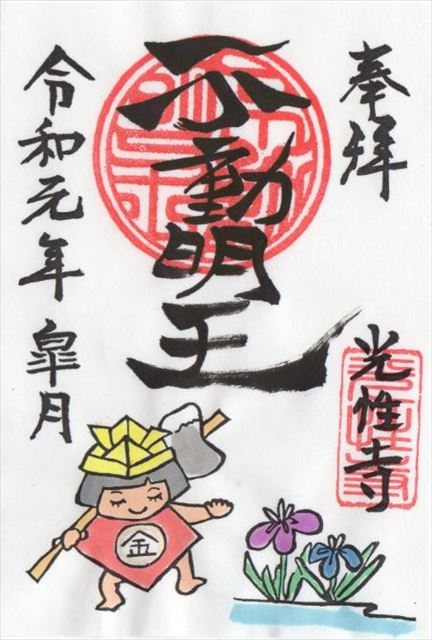 奉拝
不動明王
光性寺
令和元年 皐月
金